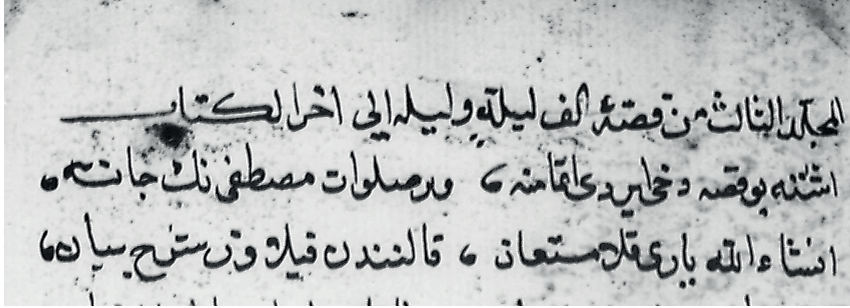 المجلد الثالث من قصة الف ليلة وليله الي اخر الكتاب
اشته بو قصه دخي ايردي اتمامنه ، وير صلوات مصطفى نك جاننه ،
انشاء الله ياري قلا مستعان ، قالنندن قيلاوز شرح بيان ،